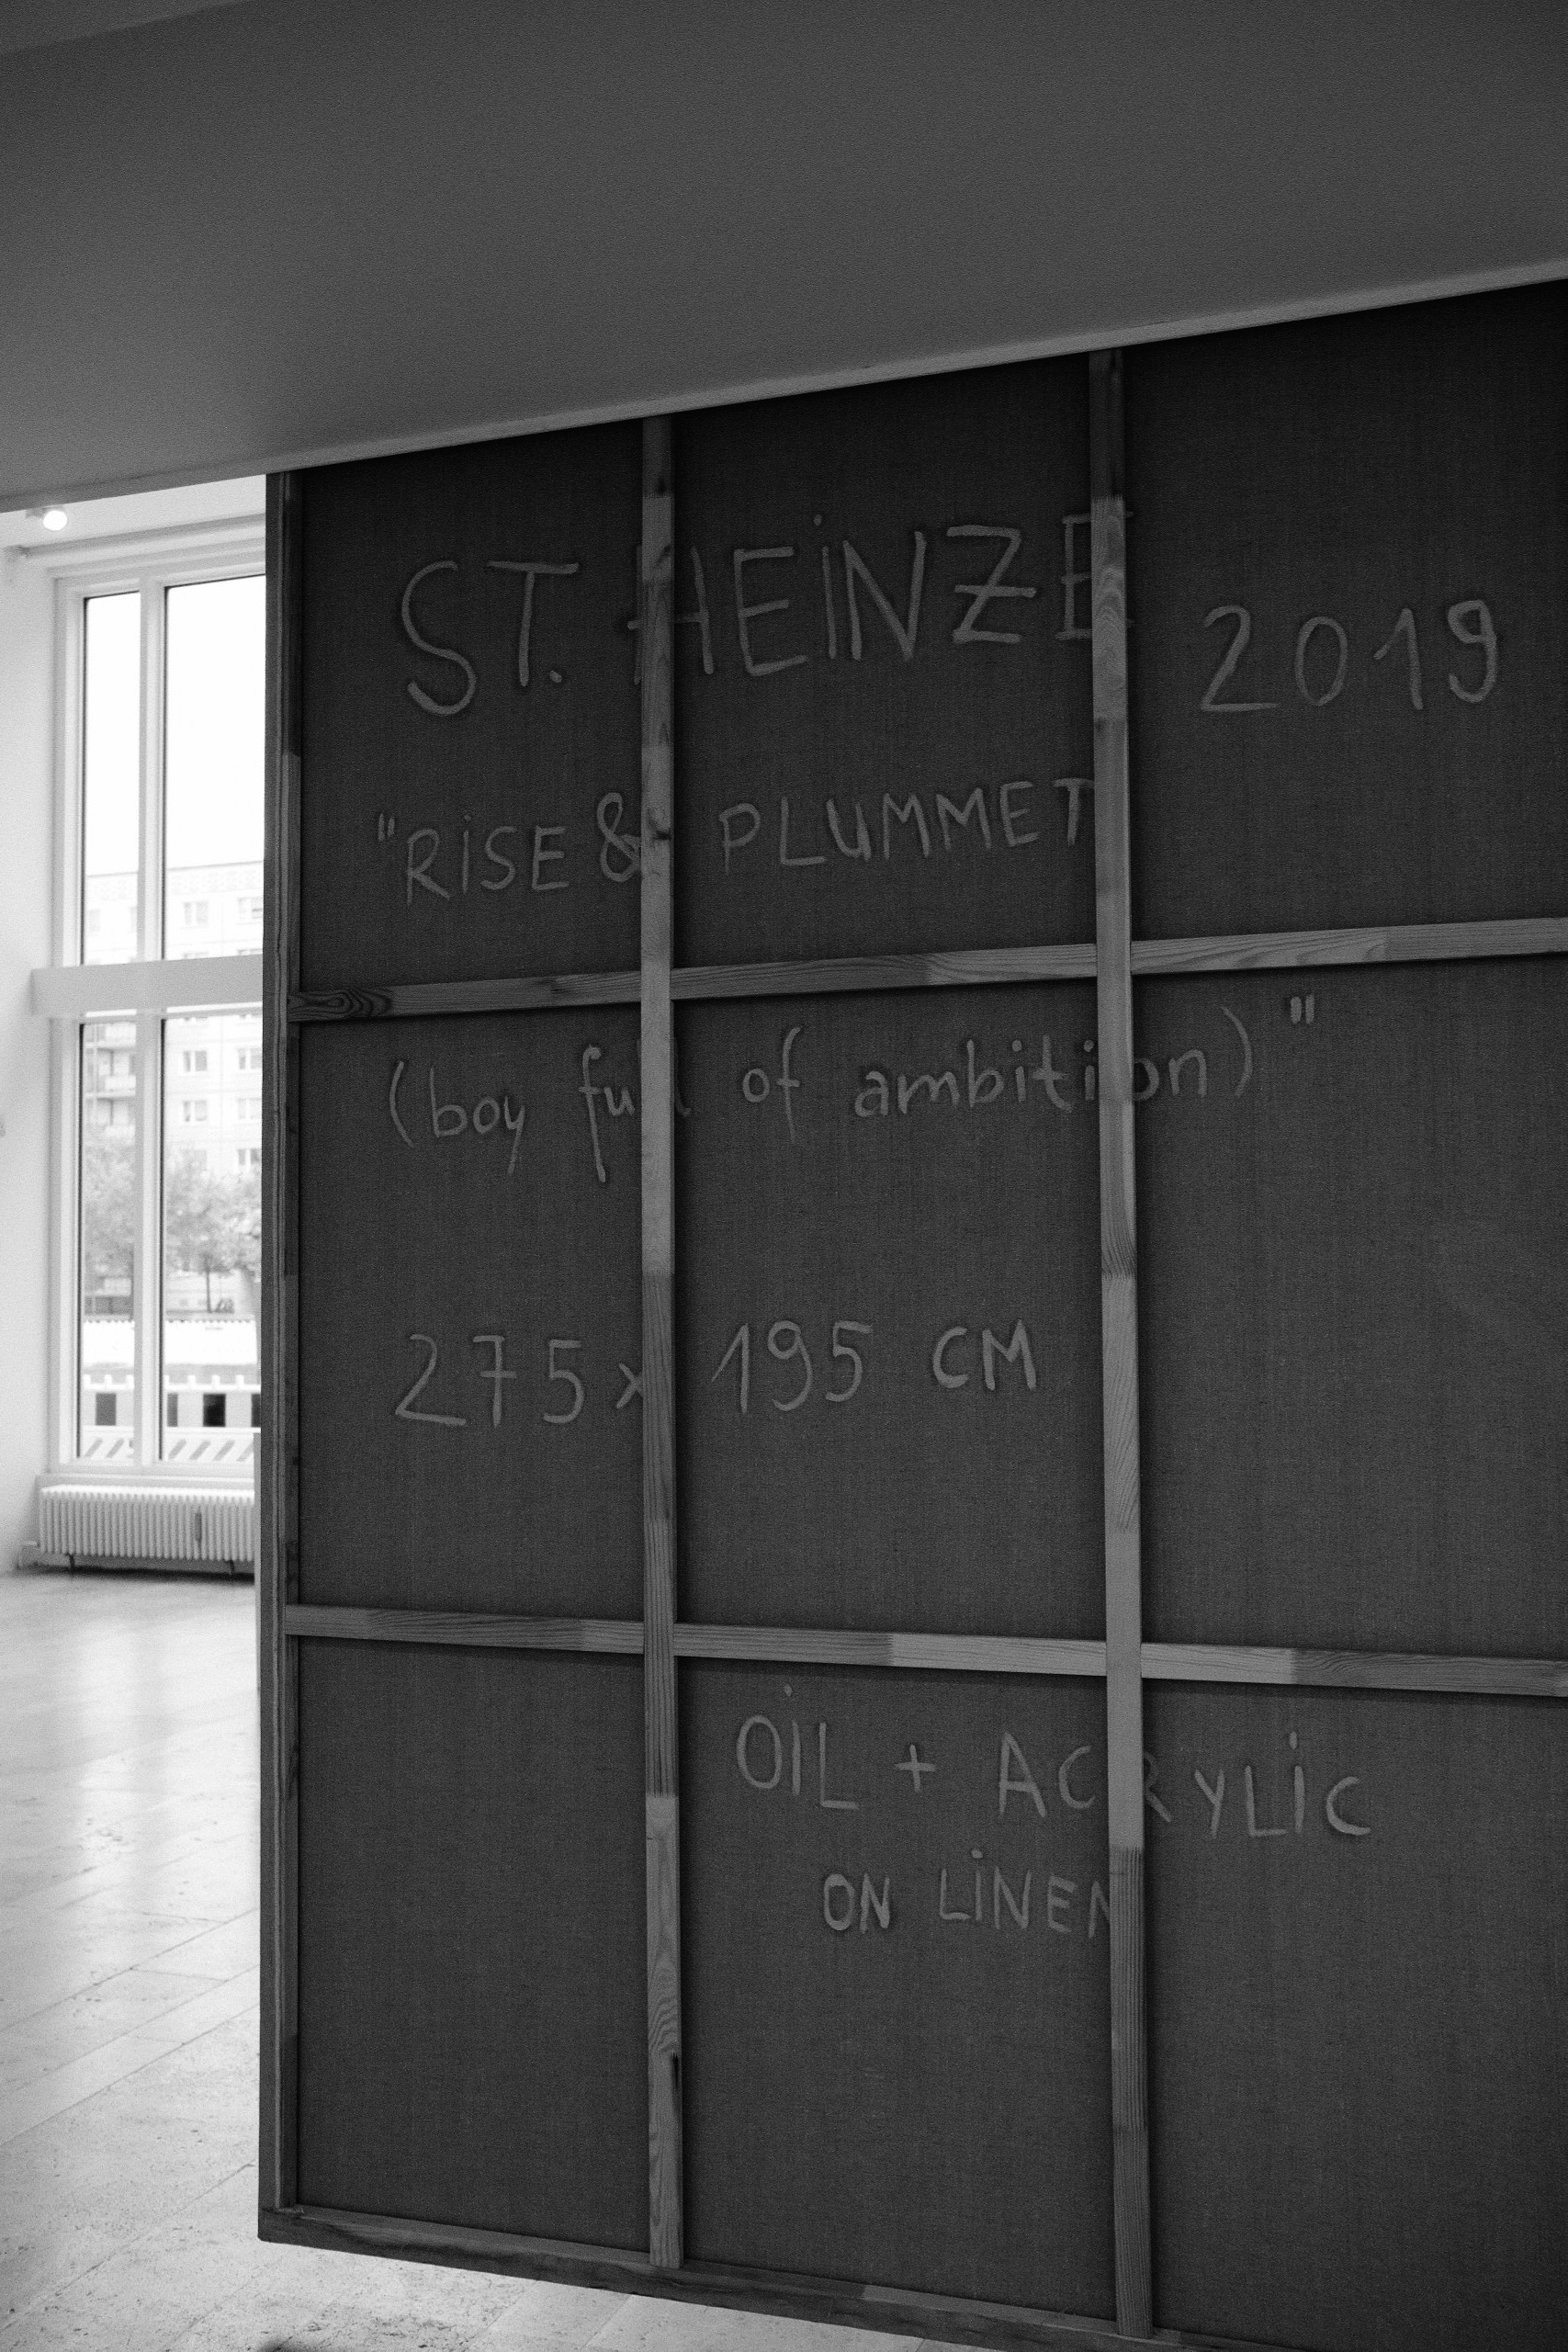 ST. HEINZE 2019
"RISE & PLUMMET
(boy full of ambition)"
275 x 195 CM
OIL + ACRYLIC
ON LINEN